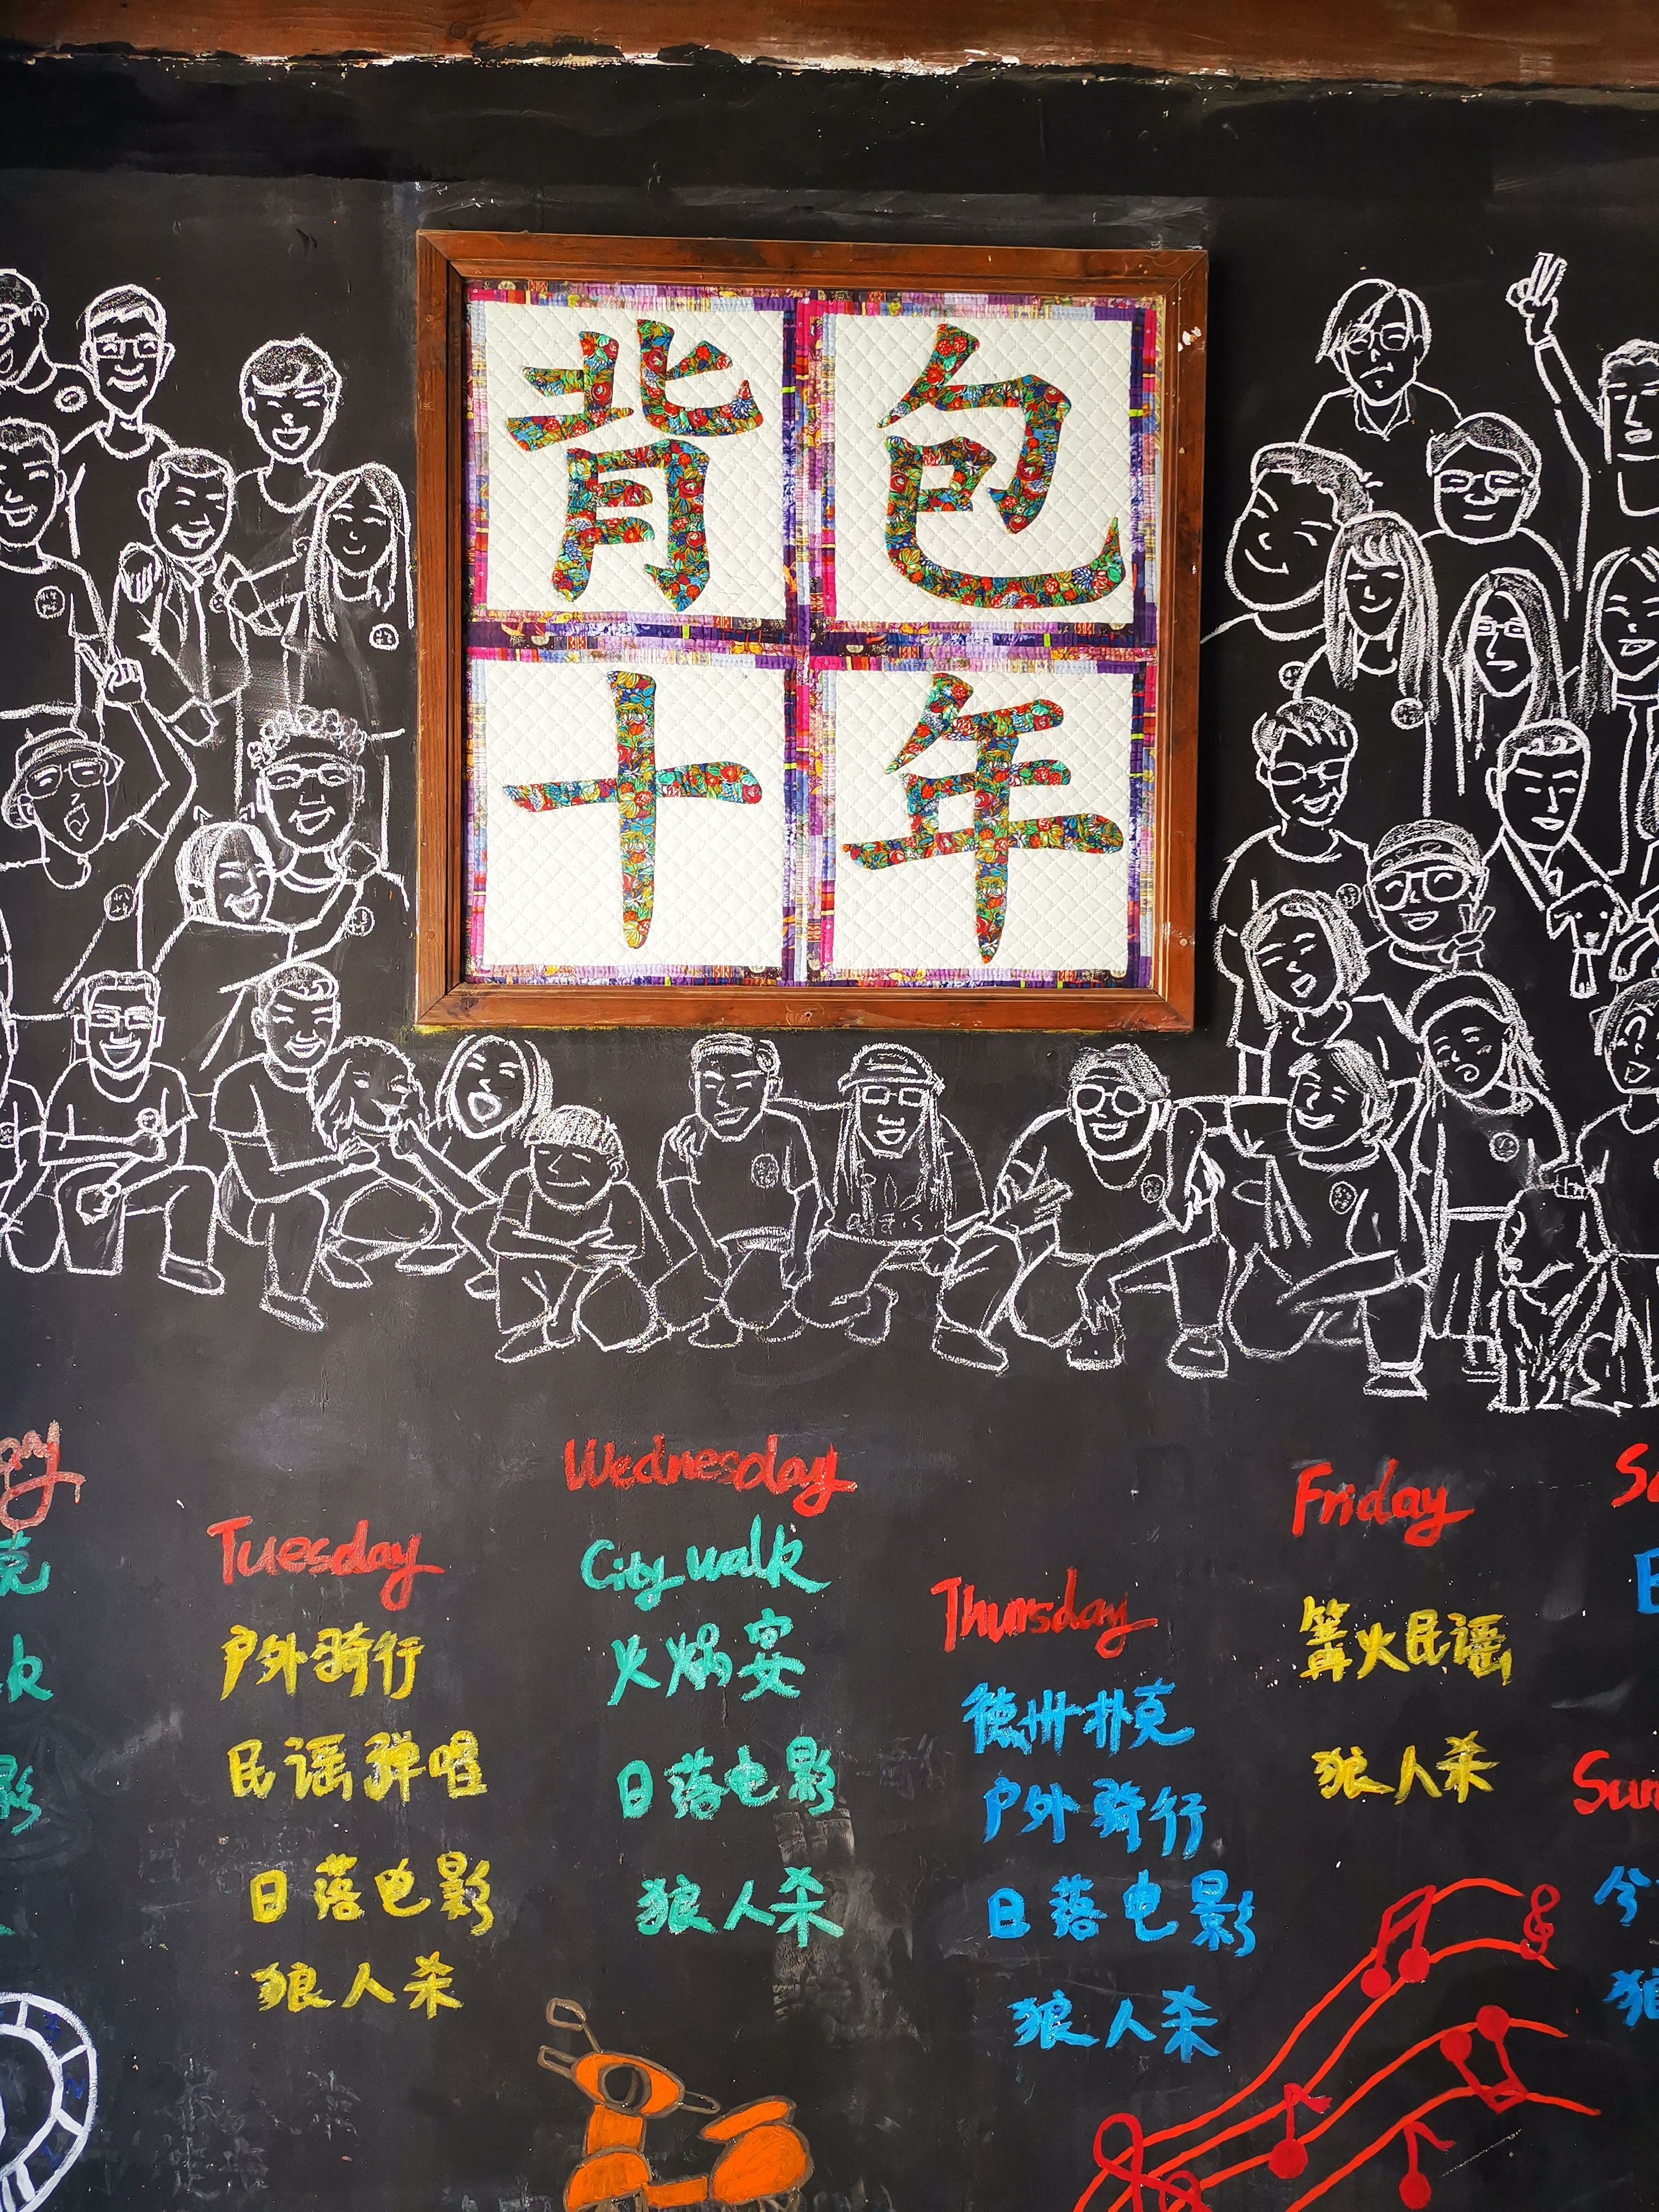 背包
十年
Tuesday
户外骑行
民谣弹唱
日落电影
狼人杀
Wednesday
City walk
火锅宴
日落电影
狼人杀
Thursday
德州扑克
户外骑行
日落电影
狼人杀
Friday
篝火民谣
狼人杀